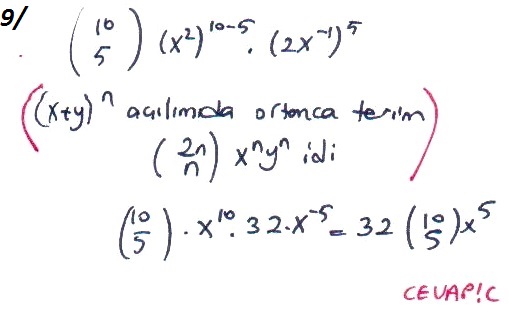 9/ (10 5) (x²)¹⁰⁻⁵ . (2x⁻¹)⁵
((x+y)ⁿ açılımıda ortanca terim
(2n n) xⁿyⁿ idi)
(10 5) . x¹⁰ . 32 . x⁻⁵ = 32 (10 5) x⁵
CEVAP!C